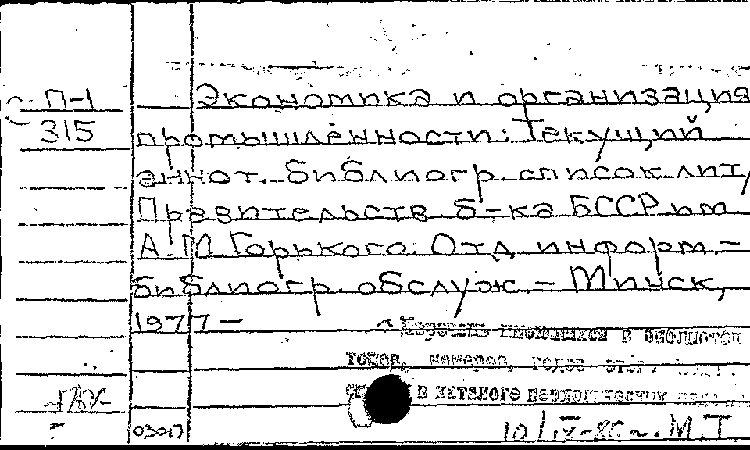 П-1
315
Экономика и организация
промышленности: Текущий
аннот. библиогр. список лит/
Правительств. б-ка БССР им
А.М. Горького. Отд информ.-
библиогр. обслуж. - Минск,
1977 -
в библиотек
томов, номеров, годов
в каталоге
03017
10/IV-86 М.Т